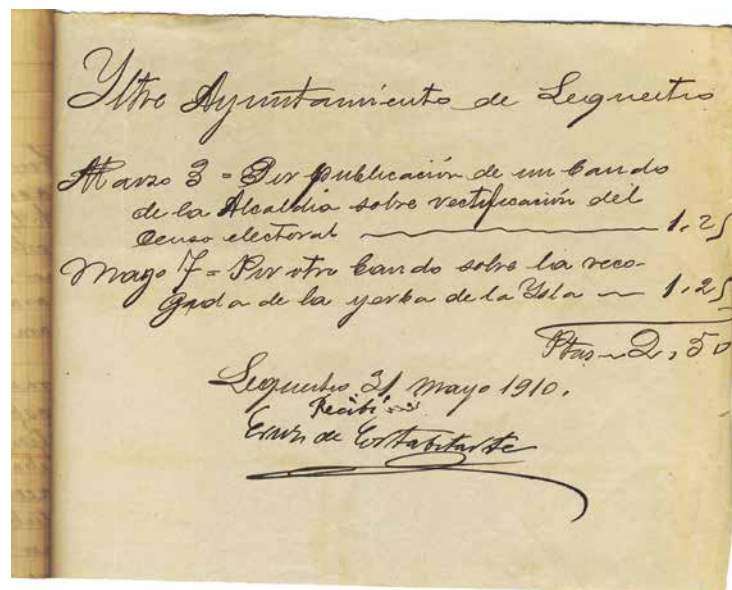 Yltre Ayuntamiento de Lequeitio
Marzo 3 = Por publicación de un bando
de la Alcaldia sobre rectificación del
Censo electoral 1,25
Mayo 7 = Por otro bando sobre la reco-
gida de la yerba de la Ysla 1,25
Ptas 2,50
Lequeitio 31 Mayo 1910.
Recibí
de